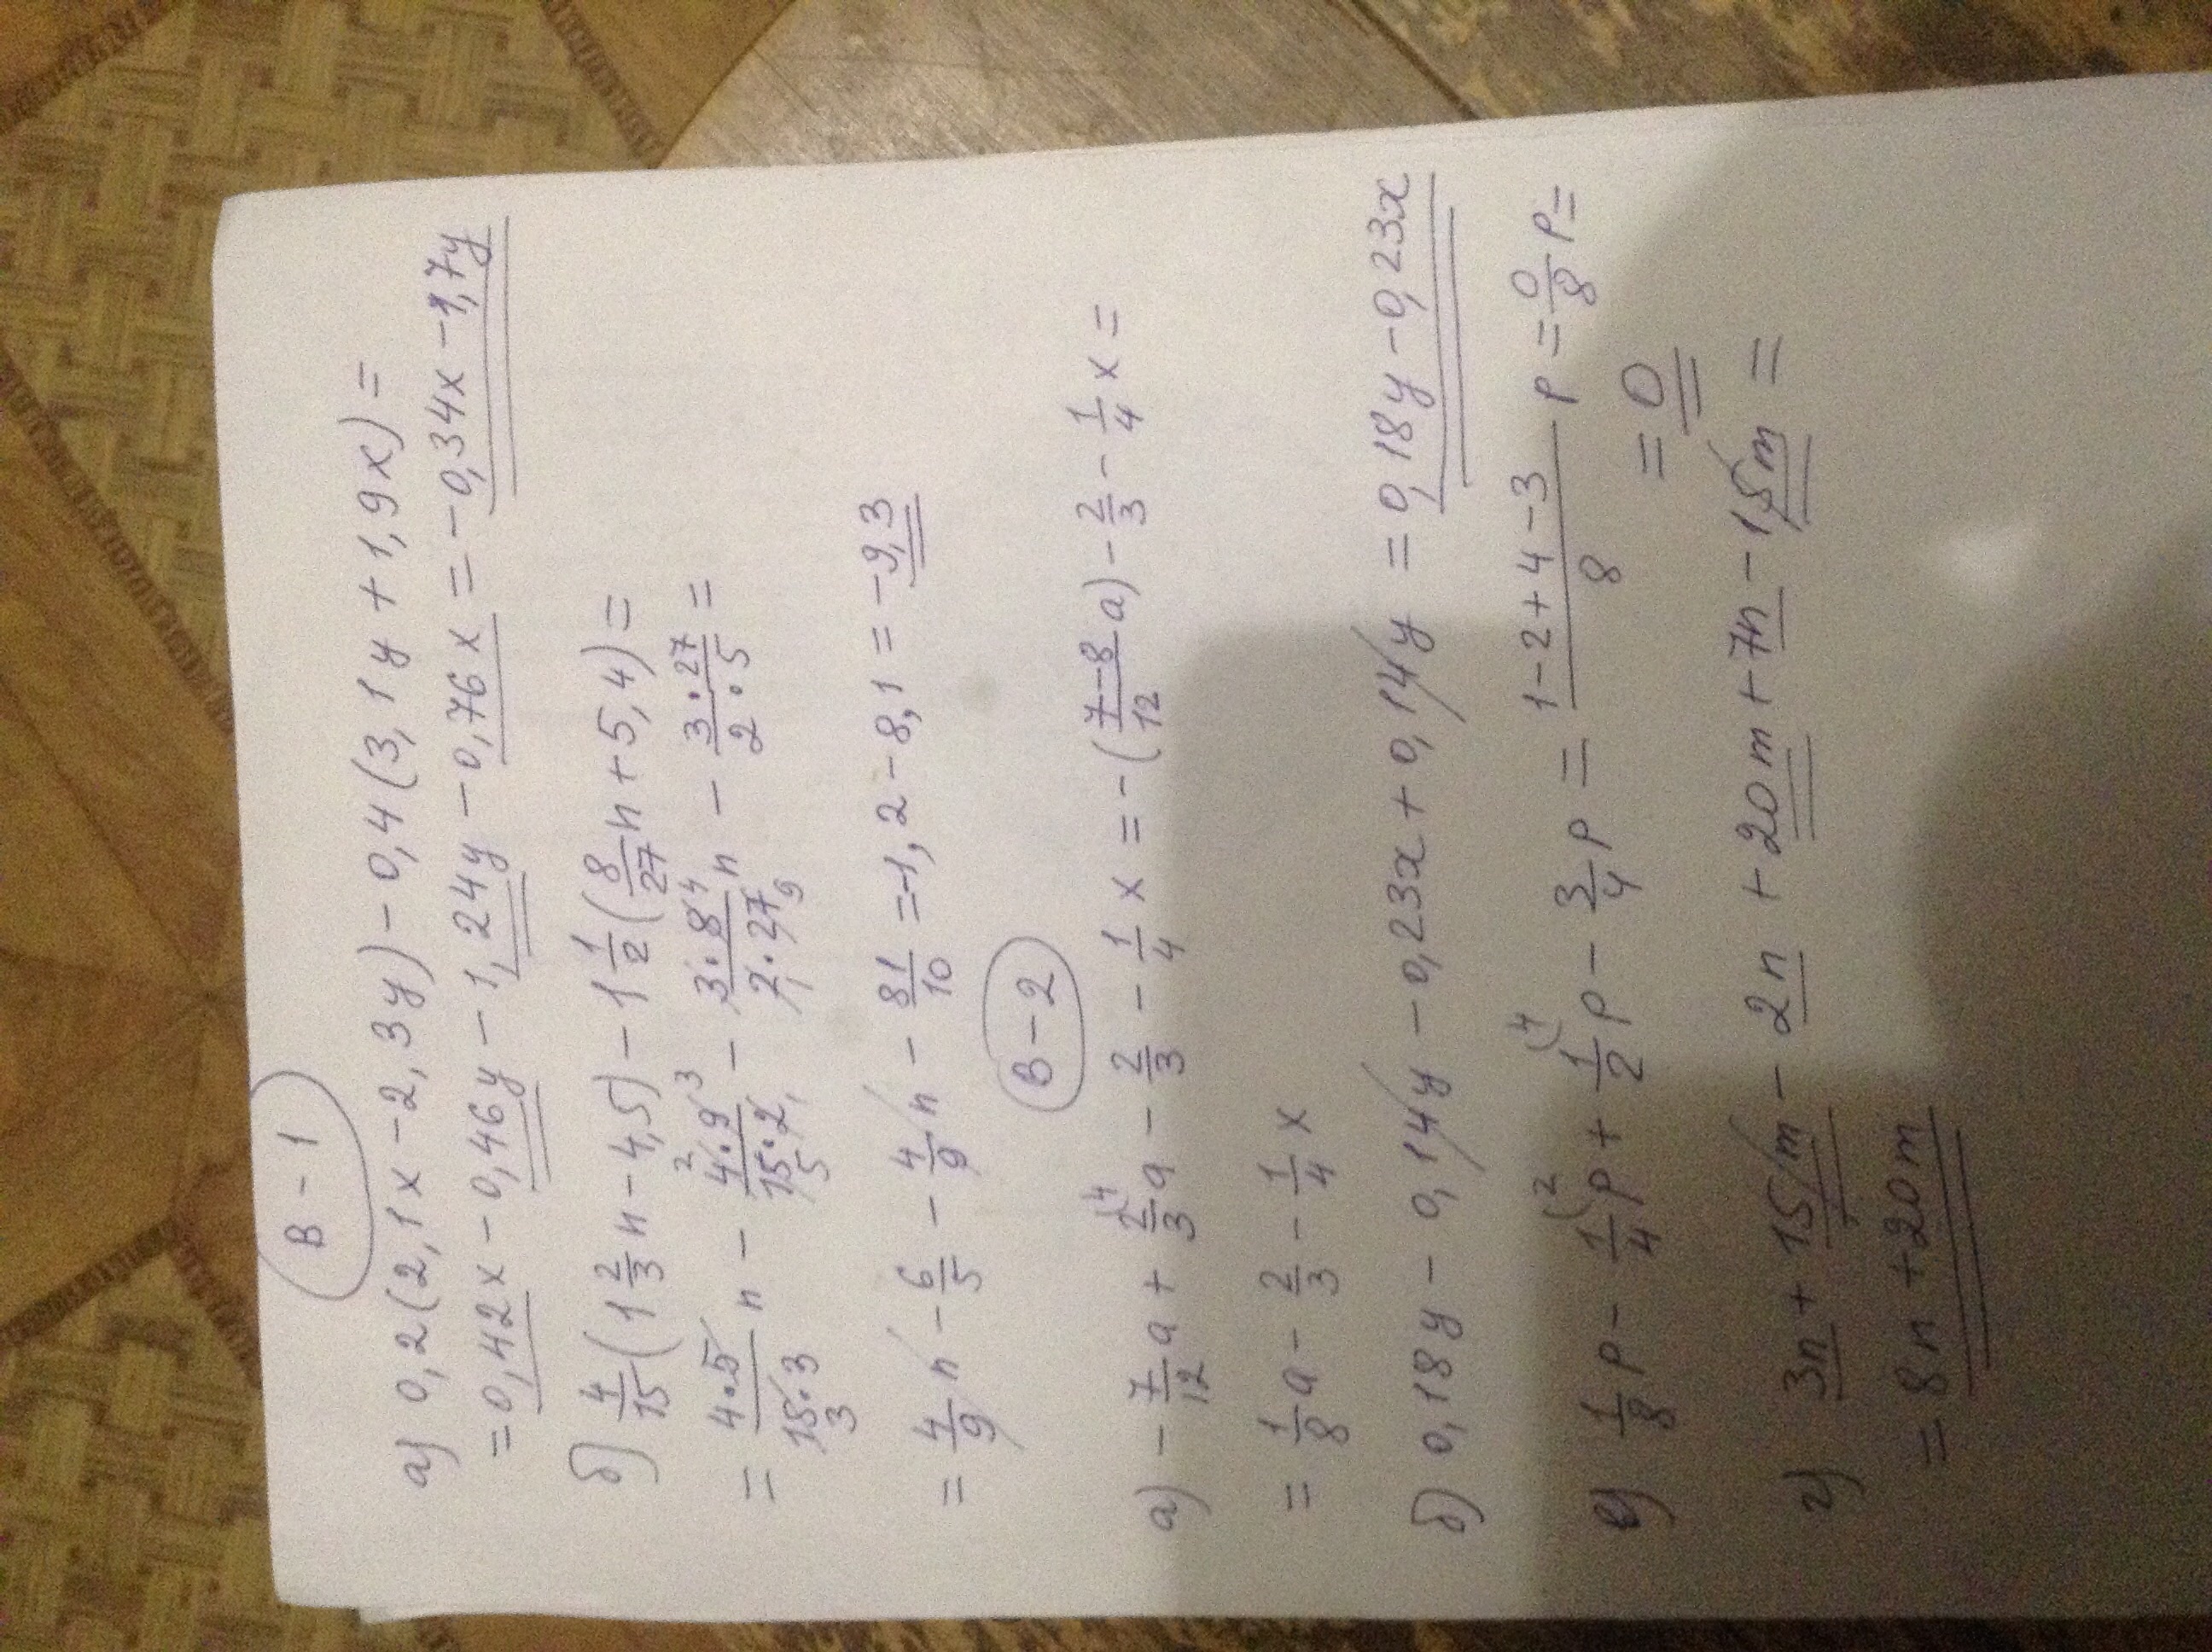 В - 1
а) 0,2(2,1x - 2,3y) - 0,4(3,1y + 1,9x) =
= 0,42x - 0,46y - 1,24y - 0,76x = -0,34x - 1,7y
б) 4/15(1 2/3 n - 4,5) - 1 1/2(8/27 n + 5,4) =
= 4·5/15·3 3 n - 2 4·9 3/15·2, 5 - 3·8 4/2·27 9 n - 3·27/2·5 =
= 4/9 n - 6/5 - 4/9 n - 81/10 = -1,2 - 8,1 = -9,3
В - 2
а) - 7/12 a + 2/3 (4 a - 2/3 - 1/4 x = -(7-8/12 a) - 2/3 - 1/4 x =
= 1/8 a - 2/3 - 1/4 x
б) 0,18y - 0,14y - 0,23x + 0,14y = 0,18y - 0,23x
в) 1/8 p - 1/4 (2 p + 1/2 (4 p - 3/4 p = 1-2+4-3/8 p = 0/8 p =
= 0
г) 3n + 15m - 2n + 20m + 7n - 15m =
= 8n + 20m